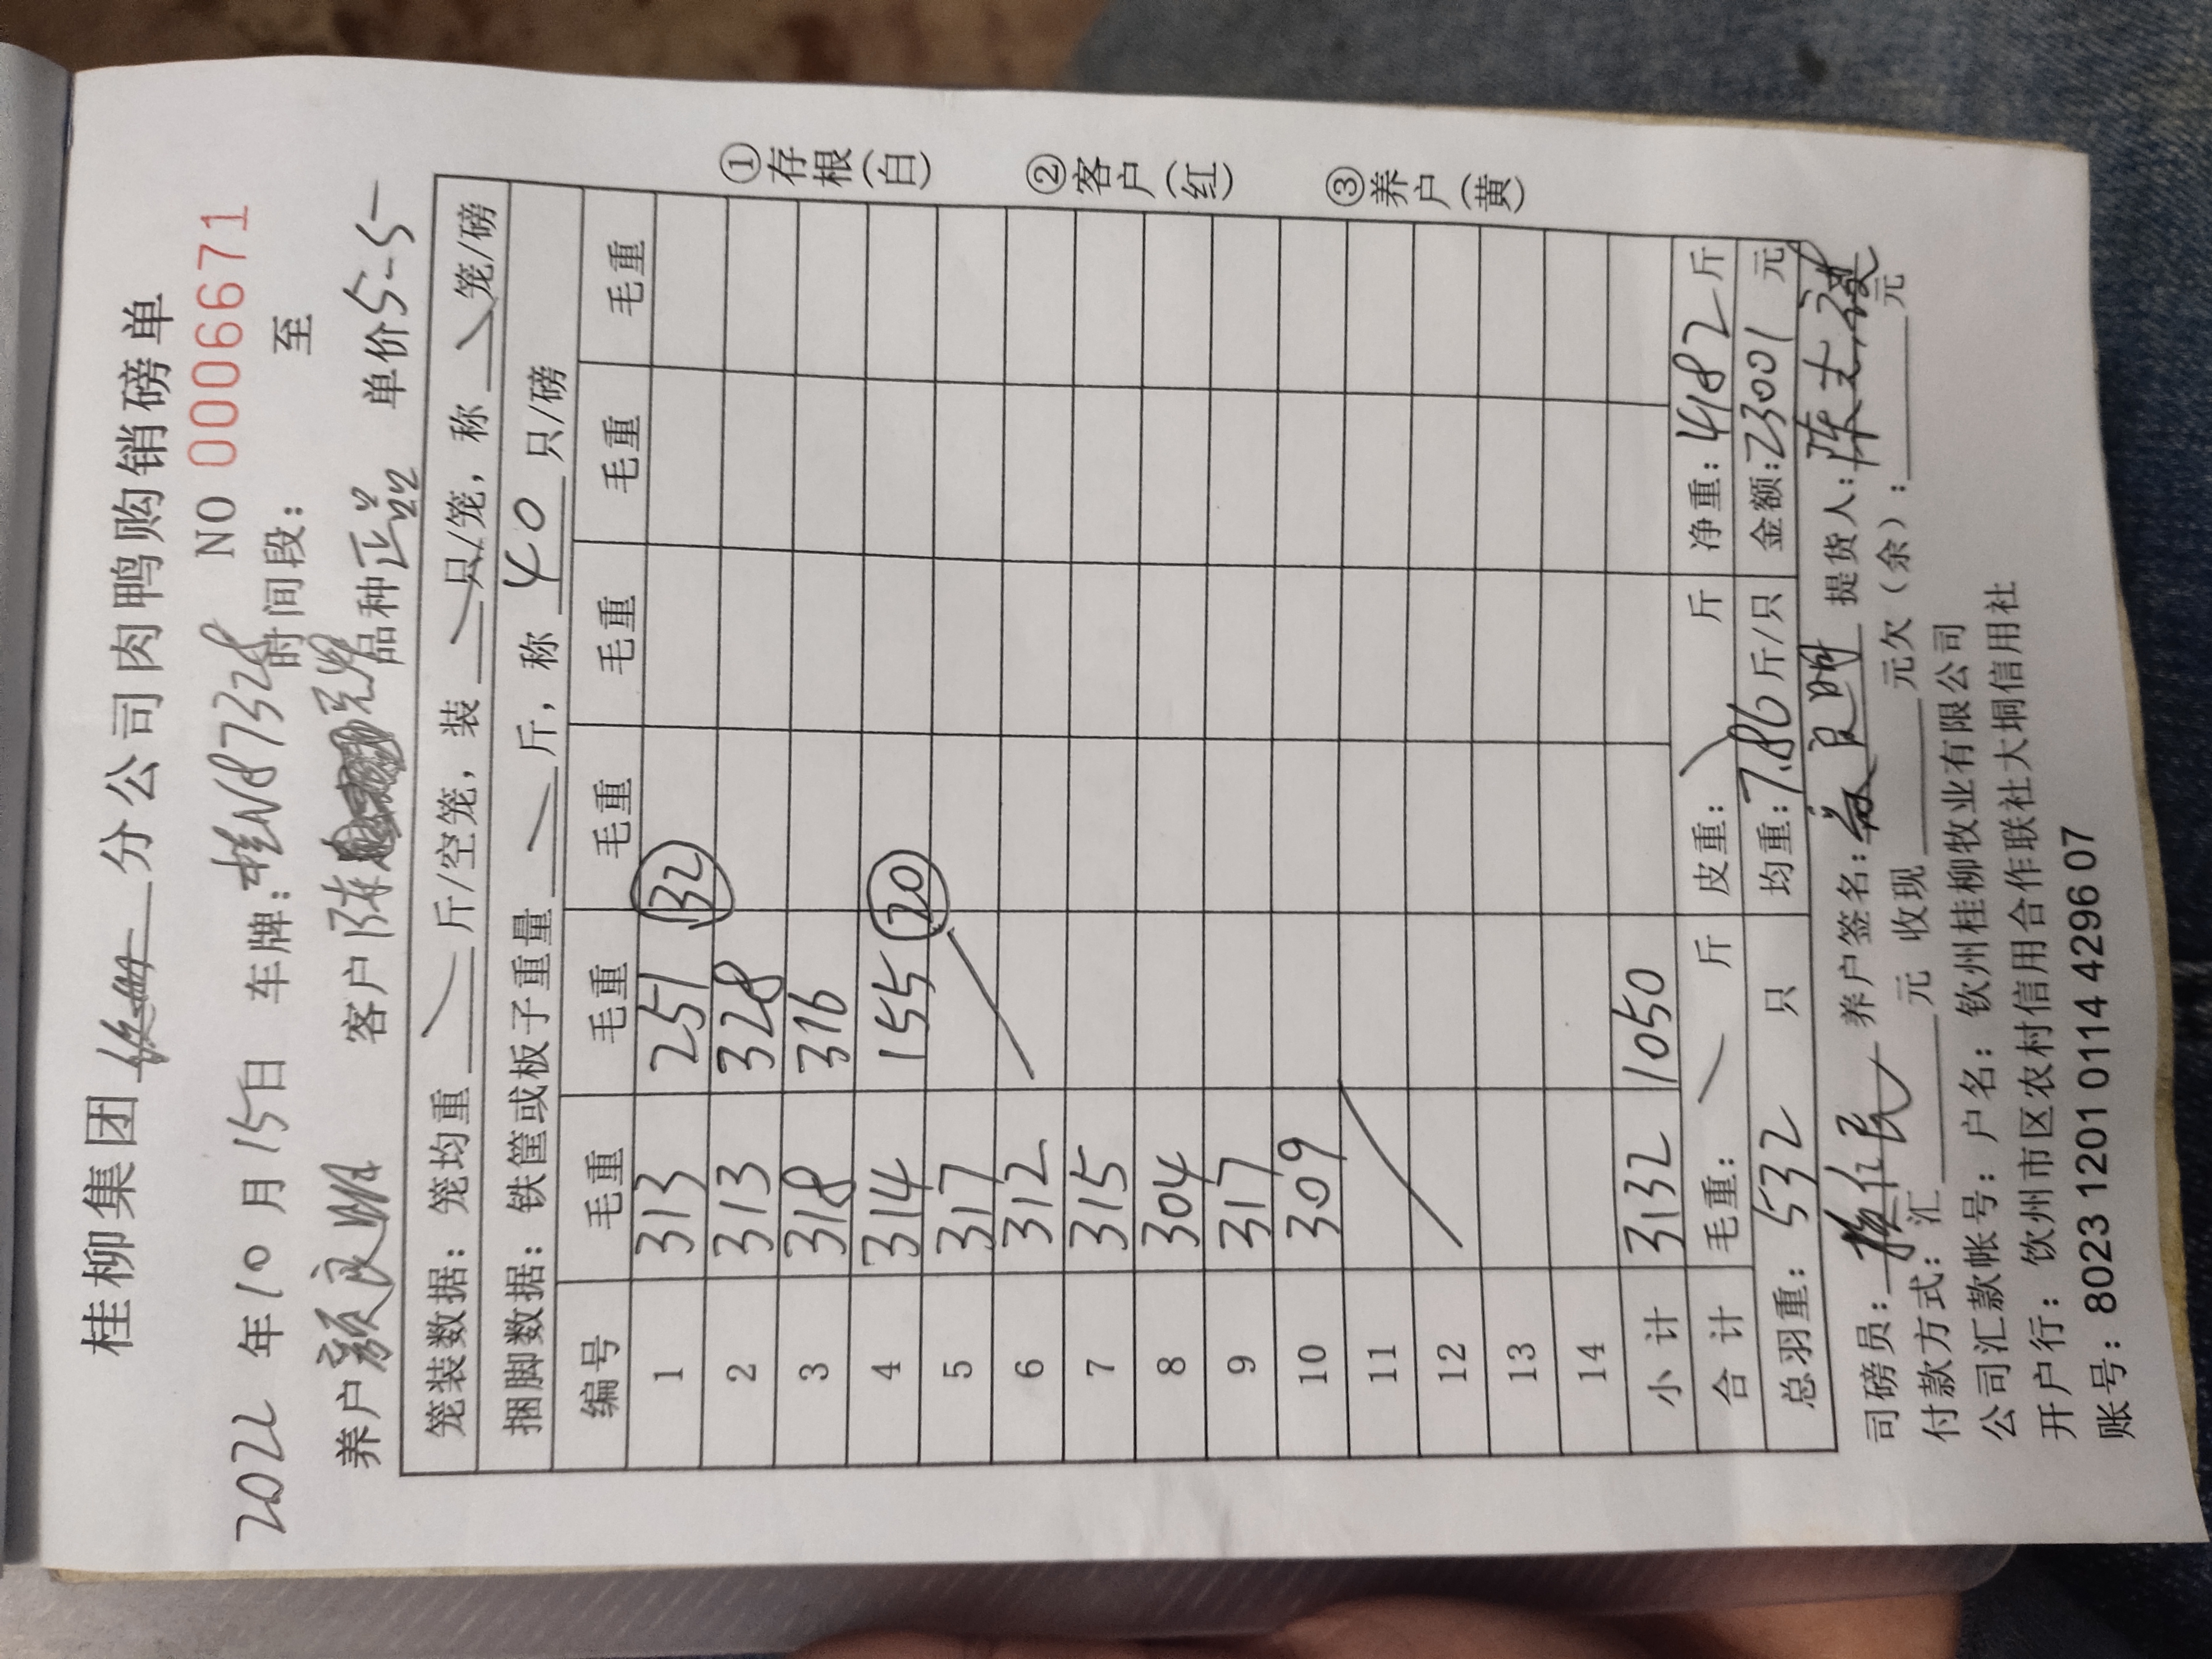 桂柳集团 分公司肉鸭购销磅单
2022 年 10 月 15 日 车牌：桂N87328 NO 0006671
时间段： 至
养户 颜良明 客户 陈 品种 正品 单价 5-5
笼装数据：笼均重 斤/空笼，装 只/笼，称 笼/磅
捆脚数据：铁筐或板子重量 斤，称 40 只/磅
编号 毛重 毛重 毛重 毛重 毛重 毛重
1 313 251 32
2 313 328
3 318 316
4 314 155 20
5 317
6 312
7 315
8 304
9 317
10 309
11
12
13
14
小计 3132 1050
合计 毛重： 斤 皮重： 斤 净重：4182 斤
总羽重：532 只 均重：7.86 斤/只 金额：23001 元
司磅员： 养户签名：颜良明 提货人：陈
付款方式：汇 元 收现 元欠（余）： 元
公司汇款帐号：户名：钦州桂柳牧业有限公司
开户行：饮州市区农村信用合作联社大垌信用社
账号：8023 1201 0114 4296 07
①存根(白) ②客户(红) ③养户(黄)